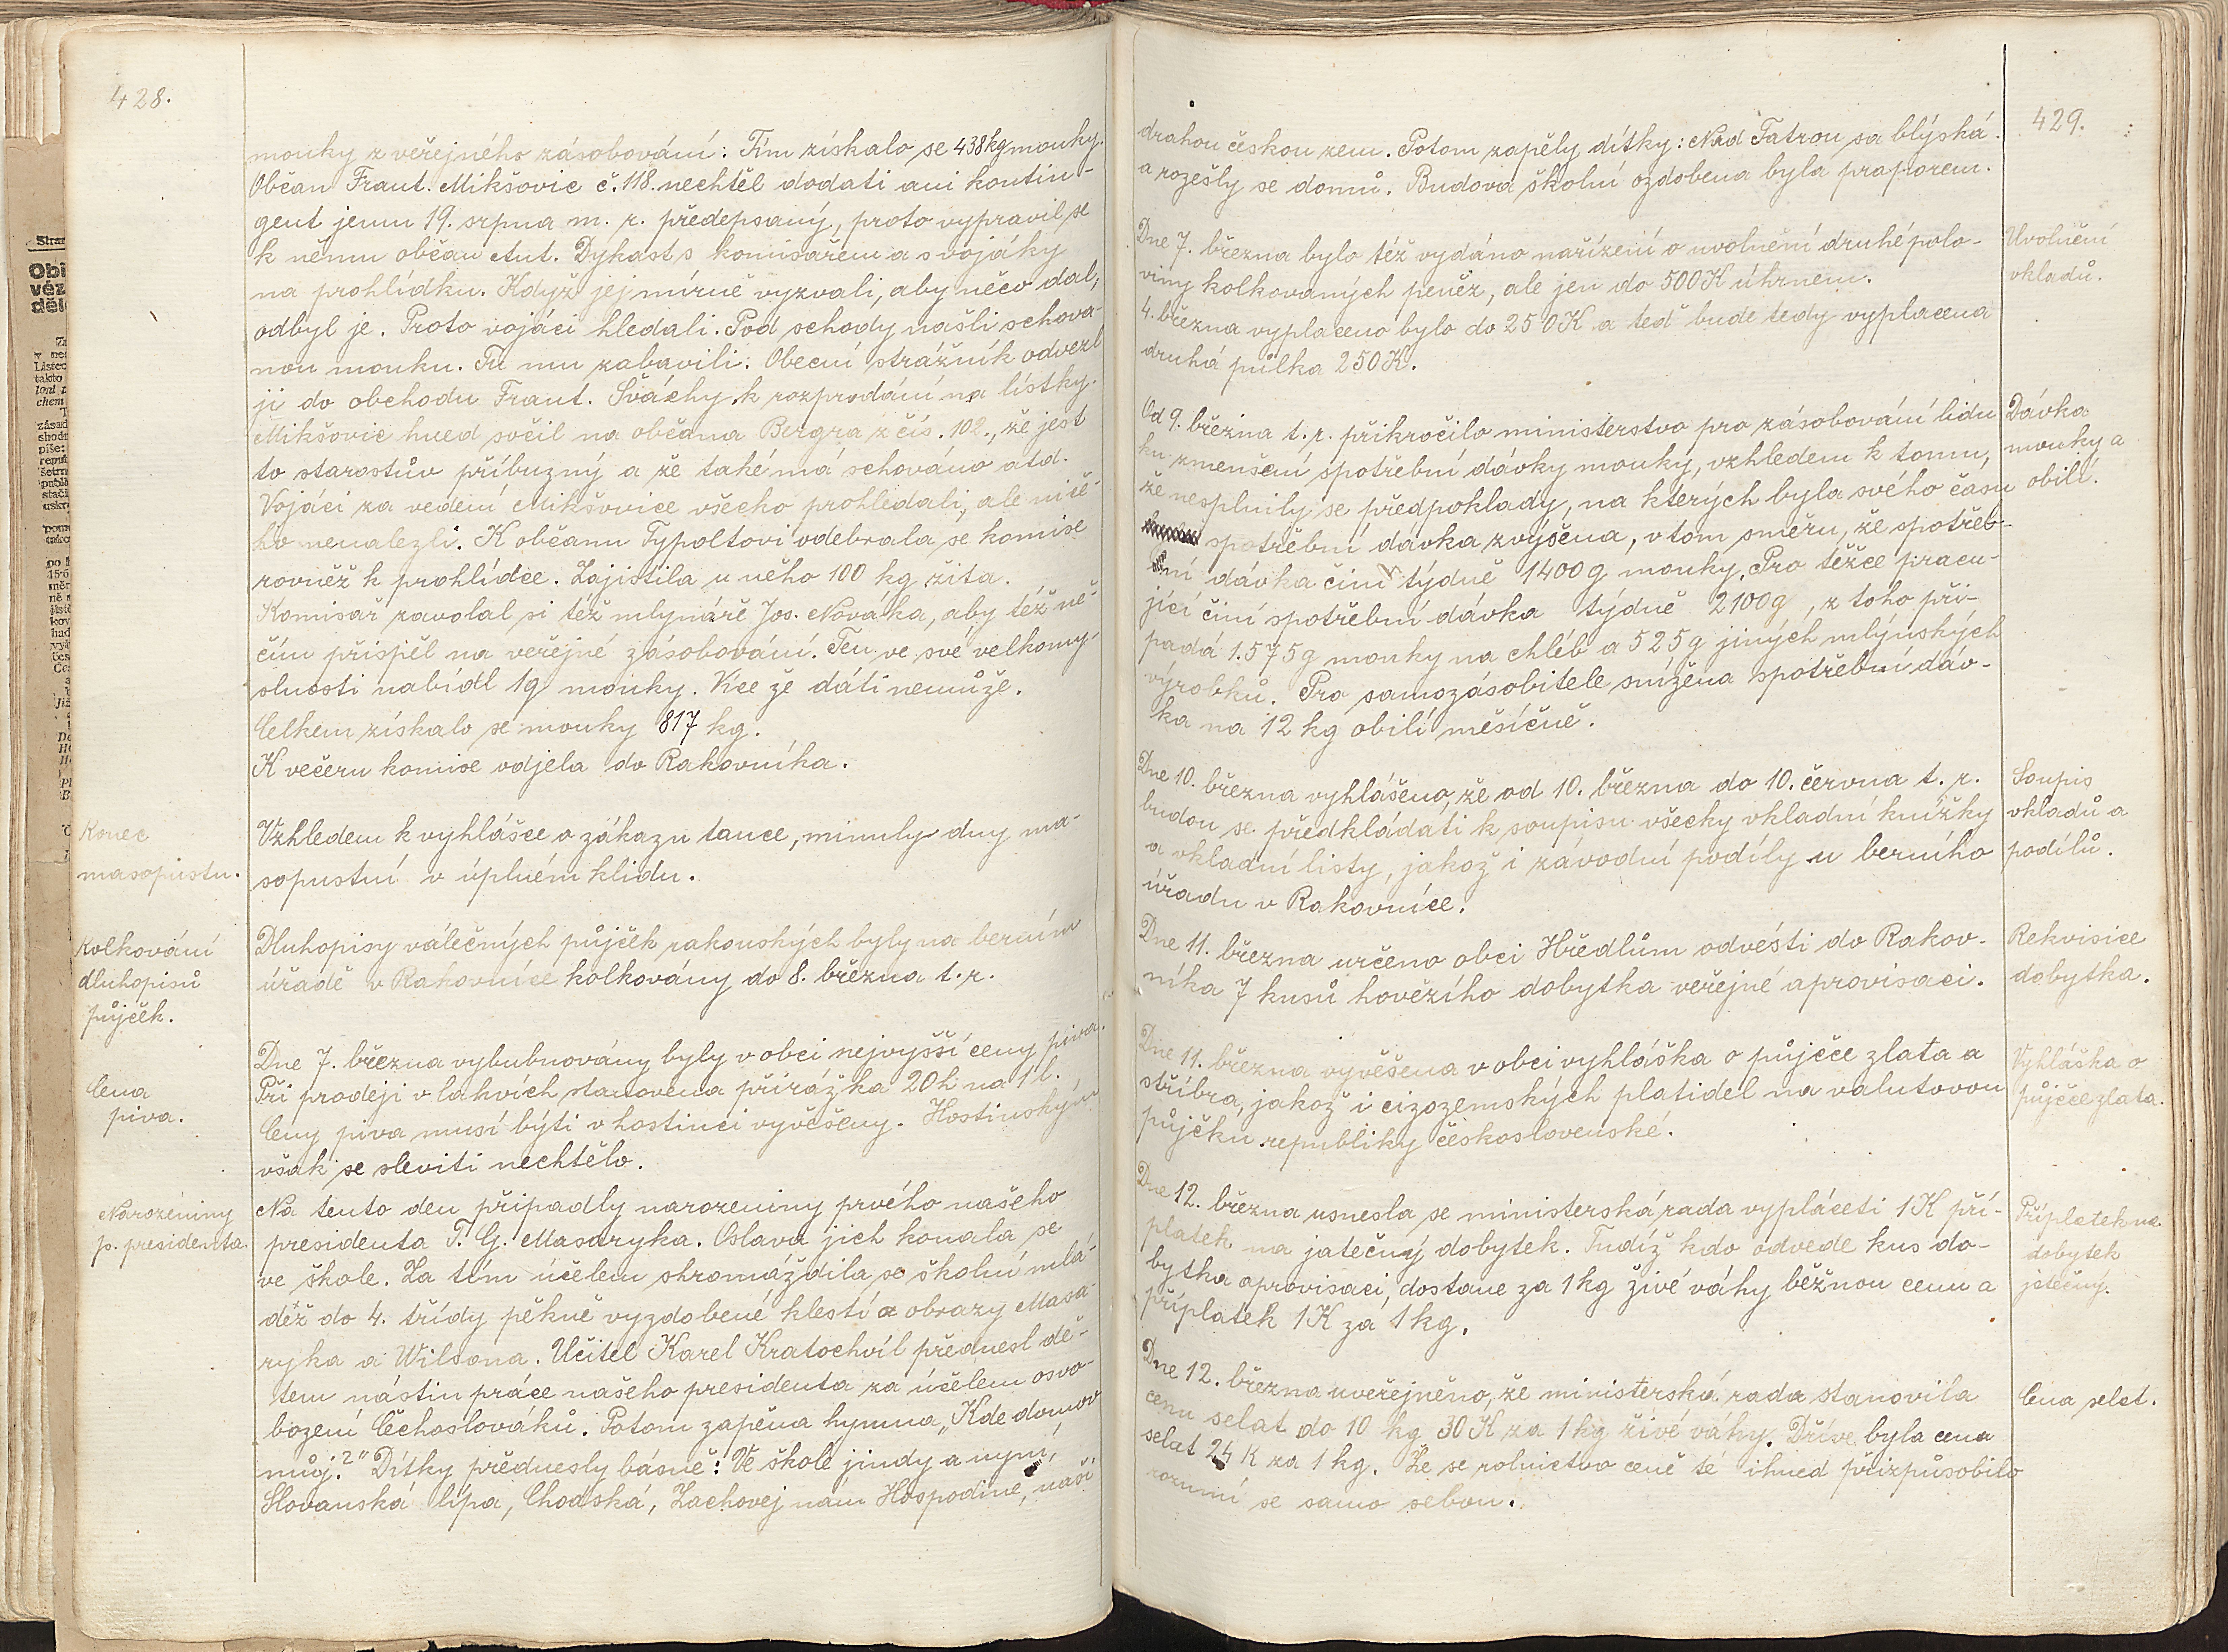 428.
mouky z veřejného zásobování: Tím získalo se 438 kg mouky.
Občan Frant. Mikšovic č. 118. nechtěl dodati ani kontin-
gent jemu 19. srpna m. r. předepsaný, proto vypravil se
k němu občan Ant. Dykast s komisařem a s vojáky
na prohlídku. Když jej mírně vyzvali, aby něco dal,
odbyl je. Proto vojáci hledali. Pod schody našli schova-
nou mouku. Tu mu zabavili. Obecní strážník odvezl
ji do obchodu Frant. Šváchy k rozprodání na lístky.
Mikšovic hned sočil na občana Bergra z čís. 102., že jest
to starostův příbuzný a že také má schováno atd.
Vojáci za vedení Mikšovice všecko prohledali, ale niče-
ho nenalezli. K občanu Typoltovi odebrala se komise
rovněž k prohlídce. Zajistila u něho 100 kg žita.
Komisař zavolal si též mlynáře Jos. Nováka, aby též ně-
čím přispěl na veřejné zásobování. Ten ve své velkomy-
slnosti nabídl 1q mouky. Více že dáti nemůže.
Celkem získalo se mouky 817 kg.
K večeru komise odjela do Rakovníka.
Konec
masopustu.
Vzhledem k vyhlášce o zákazu tance, minuly dny ma-
sopustní v úplném klidu.
Kolkování
dluhopisů
půjček.
Dluhopisy válečných půjček rakouských byly na berním
úřadě v Rakovníce kolkovány do 8. března t. r.
Cena
piva.
Dne 7. března vybubnovány byly v obci nejvyšší ceny piva.
Při prodeji v lahvích stanovena přirážka 20 h na 1 l.
Ceny piva musí býti v hostinci vyvěšeny. Hostinským
však se sleviti nechtělo.
Narozeniny
p. presidenta.
Na tento den připadly narozeniny prvého našeho
presidenta T. G. Masaryka. Oslava jich konala se
ve škole. Za tím účelem shromáždila se školní mlá-
děž do 4. třídy pěkně vyzdobené klestí a obrazy Masa-
ryka a Wilsona. Učitel Karel Kratochvíl přednesl dě-
tem nástin práce našeho presidenta za účelem osvo-
bození Čechoslováků. Potom zapěna hymna „Kde domov
můj?" Dítky přednesly básně: Ve škole jindy a nyní,
Slovanská lípa, Chodská, Zachovej nám Hospodine, naši
429.
drahou českou zem. Potom zapěly dítky: Nad Tatrou sa blýská.
a rozešly se domů. Budova školní ozdobena byla praporem.
Uvolnění
vkladů.
Dne 7. března bylo též vydáno nařízení o uvolnění druhé polo-
viny kolkovaných peněz, ale jen do 500 K úhrnem.
4. března vyplaceno bylo do 250 K a teď bude tedy vyplacena
druhá půlka 250 K.
Dávka
mouky a
obilí.
Od 9. března t. r. přikročilo ministerstvo pro zásobování lidu
ku zmenšení spotřební dávky mouky, vzhledem k tomu,
že nesplnily se předpoklady, na kterých byla svého času
spotřební dávka zvýšena, v tom směru, že spotřeb-
ní dávka činí týdně 1400 g mouky. Pro těžce pracu-
jící činí spotřební dávka týdně 2100 g, z toho při-
padá 1.575 g mouky na chléb a 525 g jiných mlýnských
výrobků. Pro samozásobitele snížena spotřební dáv-
ka na 12 kg obilí měsíčně.
Soupis
vkladů a
podílů.
Dne 10. března vyhlášeno, že od 10. března do 10. června t. r.
budou se předkládati k soupisu všecky vkladní knížky
a vkladní listy, jakož i závodní podíly u berního
úřadu v Rakovníce.
Rekvisice
dobytka.
Dne 11. března určeno obci Hředlům odvésti do Rakov-
níka 7 kusů hovězího dobytka veřejné aprovisaci.
Vyhláška o
půjčce zlata.
Dne 11. března vyvěšena v obci vyhláška o půjčce zlata a
stříbra, jakož i cizozemských platidel na valutovou
půjčku republiky československé.
Příplatek na
dobytek
jatečný.
Dne 12. března usnesla se ministerská rada vypláceti 1 K pří-
platek na jatečný dobytek. Tudíž kdo odvede kus do-
bytka aprovisaci, dostane za 1 kg živé váhy běžnou cenu a
příplatek 1 K za 1 kg.
Cena selat.
Dne 12. března uveřejněno, že ministerská rada stanovila
cenu selat do 10 kg 30 K za 1 kg živé váhy. Dříve byla cena
selat 24 K za 1 kg. Že se rolnictvo ceně té ihned přizpůsobilo
rozumí se samo sebou.